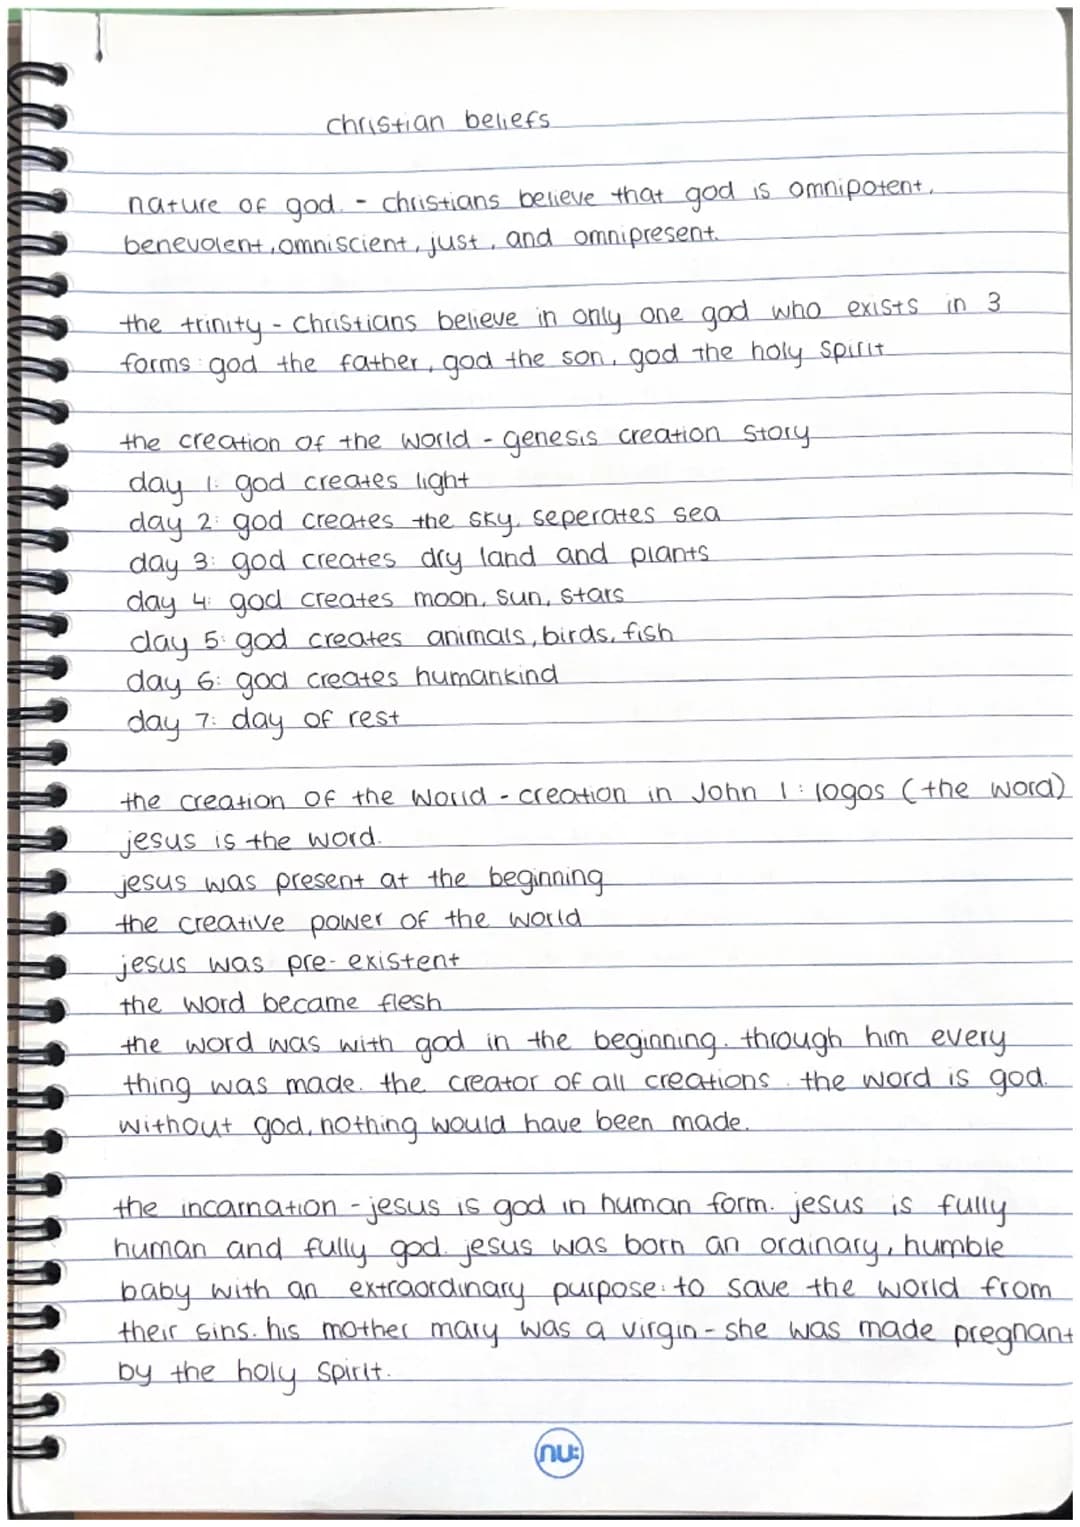 christian beliefs
nature of god. - christians believe that god is omnipotent,
benevolent, omniscient, just, and omnipresent.
the trinity - Christians believe in only one god who exists in 3
forms: god the father, god the son, god the holy spirit
the creation of the world - genesis creation story
day 1: god creates light
day 2: god creates the sky, seperates sea
day 3: god creates dry land and plants
day 4: god creates moon, sun, stars
day 5: god creates animals, birds, fish
day 6: god creates humankind
day 7: day of rest
the creation of the world - creation in John 1: logos (the word)
jesus is the word.
jesus was present at the beginning
the creative power of the world
jesus was pre-existent
the word became flesh
the word was with god in the beginning. through him every
thing was made. the creator of all creations. the word is god.
without god, nothing would have been made.
the incarnation - jesus is god in human form. jesus is fully
human and fully god. jesus was born an ordinary, humble
baby with an extraordinary purpose: to save the world from
their sins. his mother mary was a virgin - she was made pregnant
by the holy spirit.
nu: